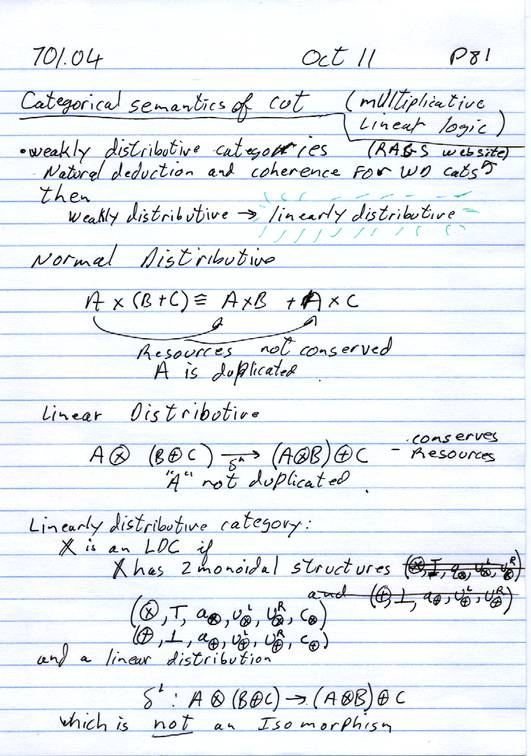 701.04 Oct 11 P81
Categorical semantics of cut (multiplicative
Linear logic)
• weakly distributive categories (RAGS website)
Natural deduction and coherence For WD cats
then
weakly distributive → linearly distributive
Normal Distributive
A × (B + C) ≡ A×B + A × C
Resources not conserved
A is duplicated.
Linear Distributive
A ⊗ (B ⊕ C) → (A⊗B) ⊕ C - conserves
Resources
"A" not duplicated.
Linearly distributive category:
X is an LDC if
X has 2 monoidal structures
and
(⊗, T, a⊗, u⊗ᴸ, u⊗ᴿ, c⊗)
(⊕, ⊥, a⊕, u⊕ᴸ, u⊕ᴿ, c⊕)
and a linear distribution
δᴸ : A ⊗ (B⊕C) → (A⊗B) ⊕ C
which is not an Isomorphism